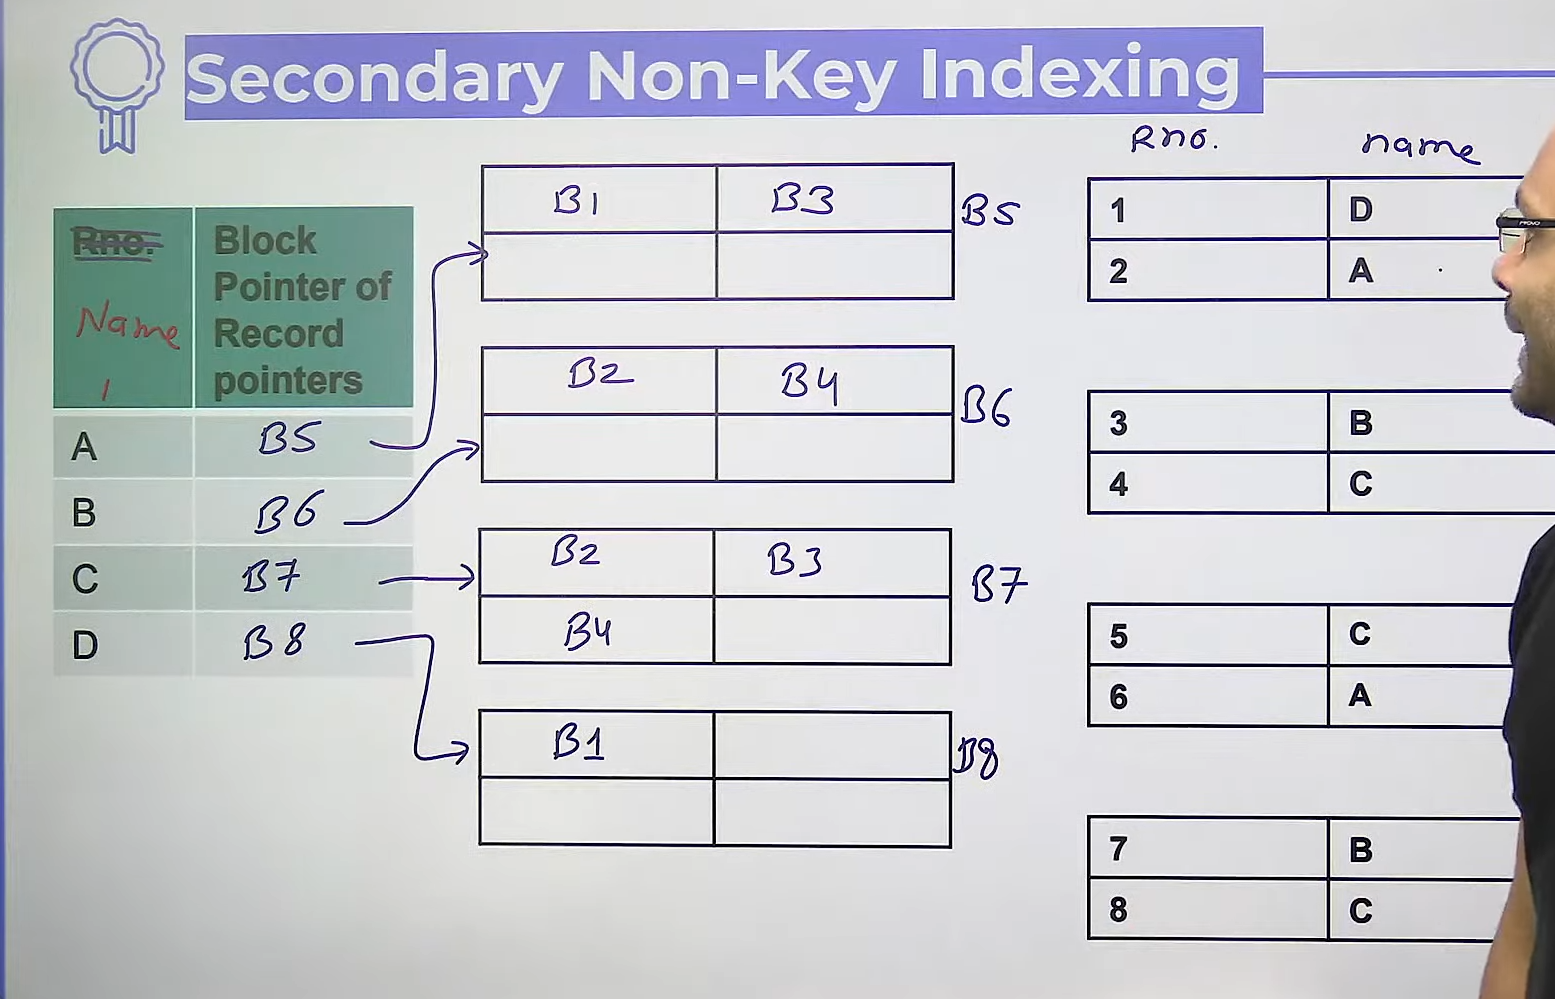 Secondary Non-Key Indexing
Rno. name
Rno. Block
Pointer of
Name Record
pointers
A B5
B B6
C B7
D B8
B1 B3 B5
B2 B4 B6
B2 B3 B7
B4
B1 B8
1 D
2 A
3 B
4 C
5 C
6 A
7 B
8 C